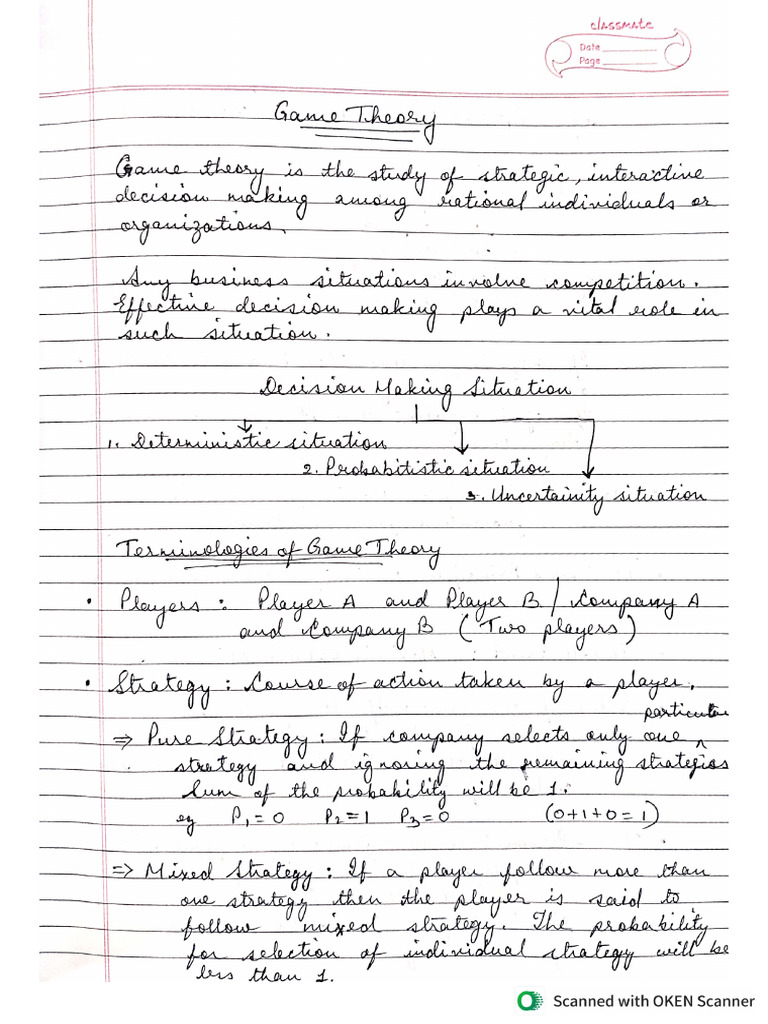 classmate
Date
Page
Game Theory
Game theory is the study of strategic, interactive
decision making among rational individuals or
organizations.
Any business situations involve competition.
Effective decision making plays a vital role in
such situation.
Decision Making Situation
1. Deterministic situation
2. Probabitistic situation
3. Uncertainity situation
Terminologies of Game Theory
• Players : Player A and Player B / Company A
and Company B (Two players)
• Strategy : Course of action taken by a player.
particular
⇒ Pure Strategy : If company selects only one ^
strategy and ignoring the remaining strategies
Sum of the probability will be 1.
eg P₁ = 0 P₂ = 1 P₃ = 0 (0+1+0=1)
⇒ Mixed Strategy : If a player follow more than
one strategy then the player is said to
follow mixed strategy. The probability
for selection of individual strategy will be
less than 1.
Scanned with OKEN Scanner